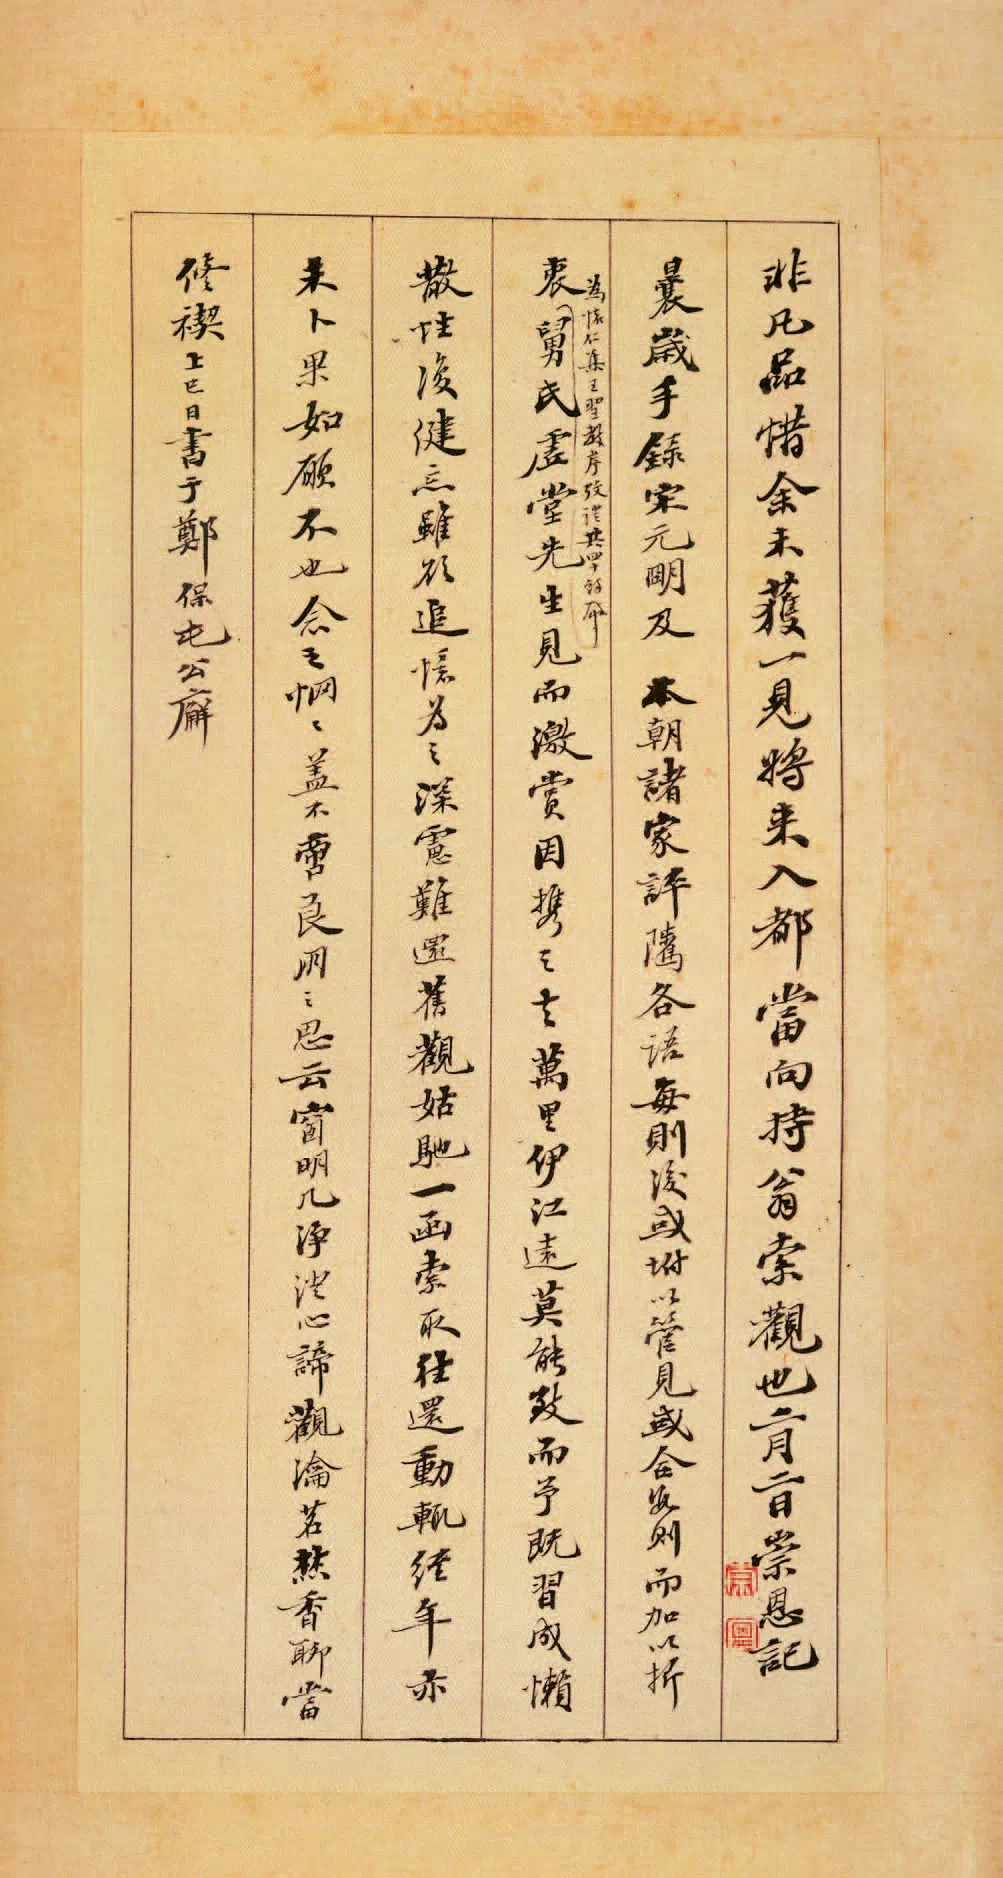 非凡品惜余未獲一見將來入都當向持翁索觀也二月二日崇恩記
曩歲手錄宋元明及本朝諸家評隲各語每則後或坿以管見或合數則而加以折
衷
為懷仁集王聖教序攷證共四
舅氏虛堂先生見而激賞因攜之去萬里伊江遠莫能致而予既習成懶
散性復健忘雖欲追憶為之深慮難還舊觀姑馳一函索取往還動輒經年亦
未卜果如願不也念之惘惘蓋不啻良朋之思云窗明几淨澄心諦觀瀹茗爇香聊當
修禊上巳日書于鄭保屯公廨